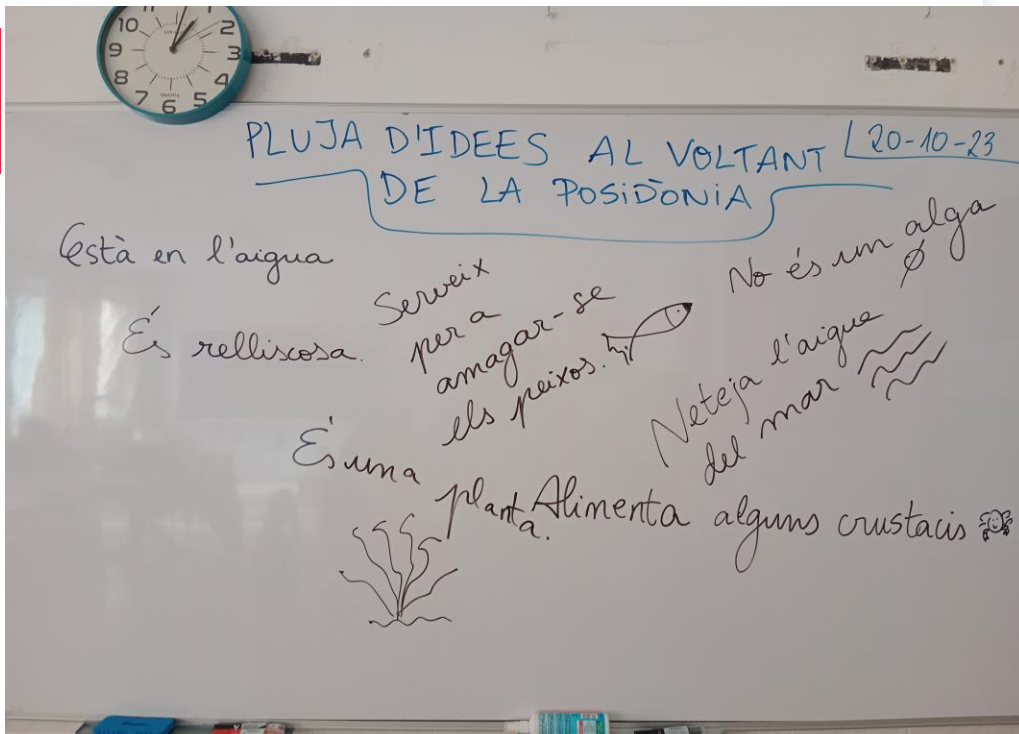 10 2
9 3
8 4
7 6 5
PLUJA D'IDEES AL VOLTANT
DE LA POSIDÒNIA
20-10-23
Està en l'aigua
És relliscosa.
Serveix
per a
amagar-se
els peixos.
No és un alga
Neteja l'aigua
del mar
És una
planta.
Alimenta alguns crustacis